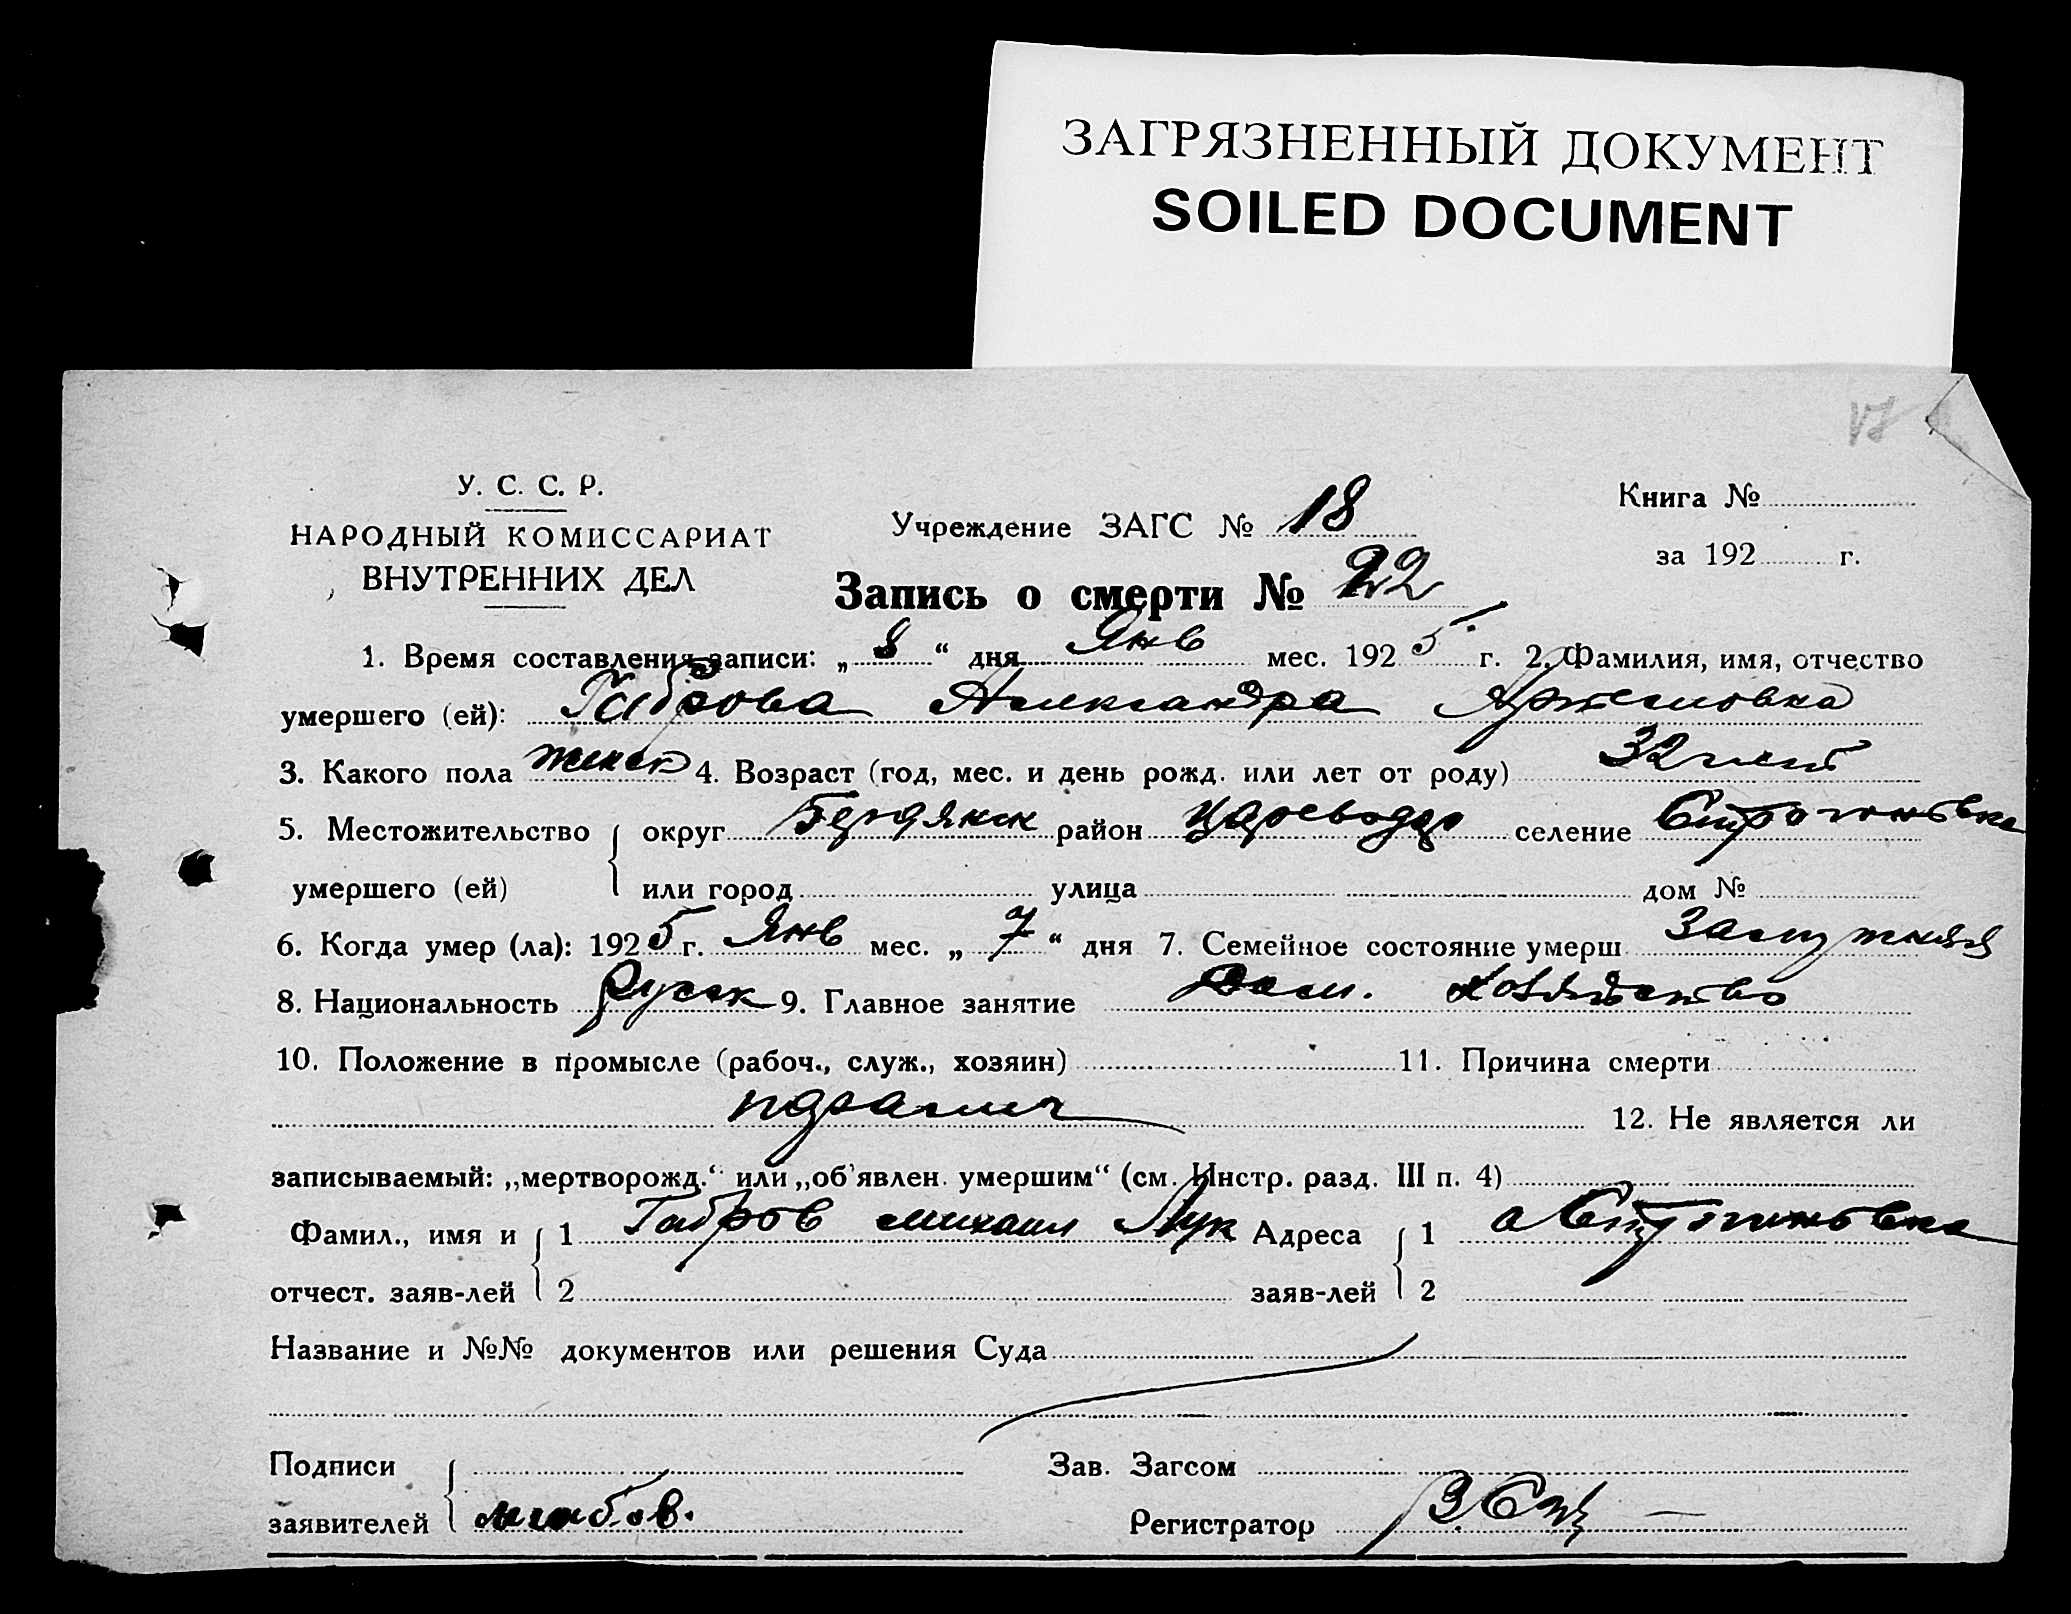 ЗАГРЯЗНЕННЫЙ ДОКУМЕНТ
SOILED DOCUMENT
У. С. С. Р.
НАРОДНЫЙ КОМИССАРИАТ
ВНУТРЕННИХ ДЕЛ
Учреждение ЗАГС № 18
Запись о смерти № 22
Книга №
за 192 г.
1. Время составления записи: „ 8 “ дня Янв мес. 192 5 г. 2. Фамилия, имя, отчество
умершего (ей): Габрова Александра
3. Какого пола женск 4. Возраст (год, мес. и день рожд. или лет от роду) 32 лет
5. Местожительство округ Бердянск район Царевод селение Строгоновка
умершего (ей) или город улица дом №
6. Когда умер (ла): 192 5 г. Янв мес. „ 7 “ дня 7. Семейное состояние умерш Замужняя
8. Национальность Русск 9. Главное занятие Дом. хозяйство
10. Положение в промысле (рабоч., служ., хозяин) 11. Причина смерти
12. Не является ли
записываемый: „мертворожд.“ или „об'явлен. умершим“ (см. Инстр. разд. III п. 4)
Фамил., имя и 1 Габров михаил Лук Адреса 1 Строгоновка
отчест. заяв-лей 2 заяв-лей 2
Название и №№ документов или решения Суда
Подписи Зав. Загсом
заявителей Регистратор